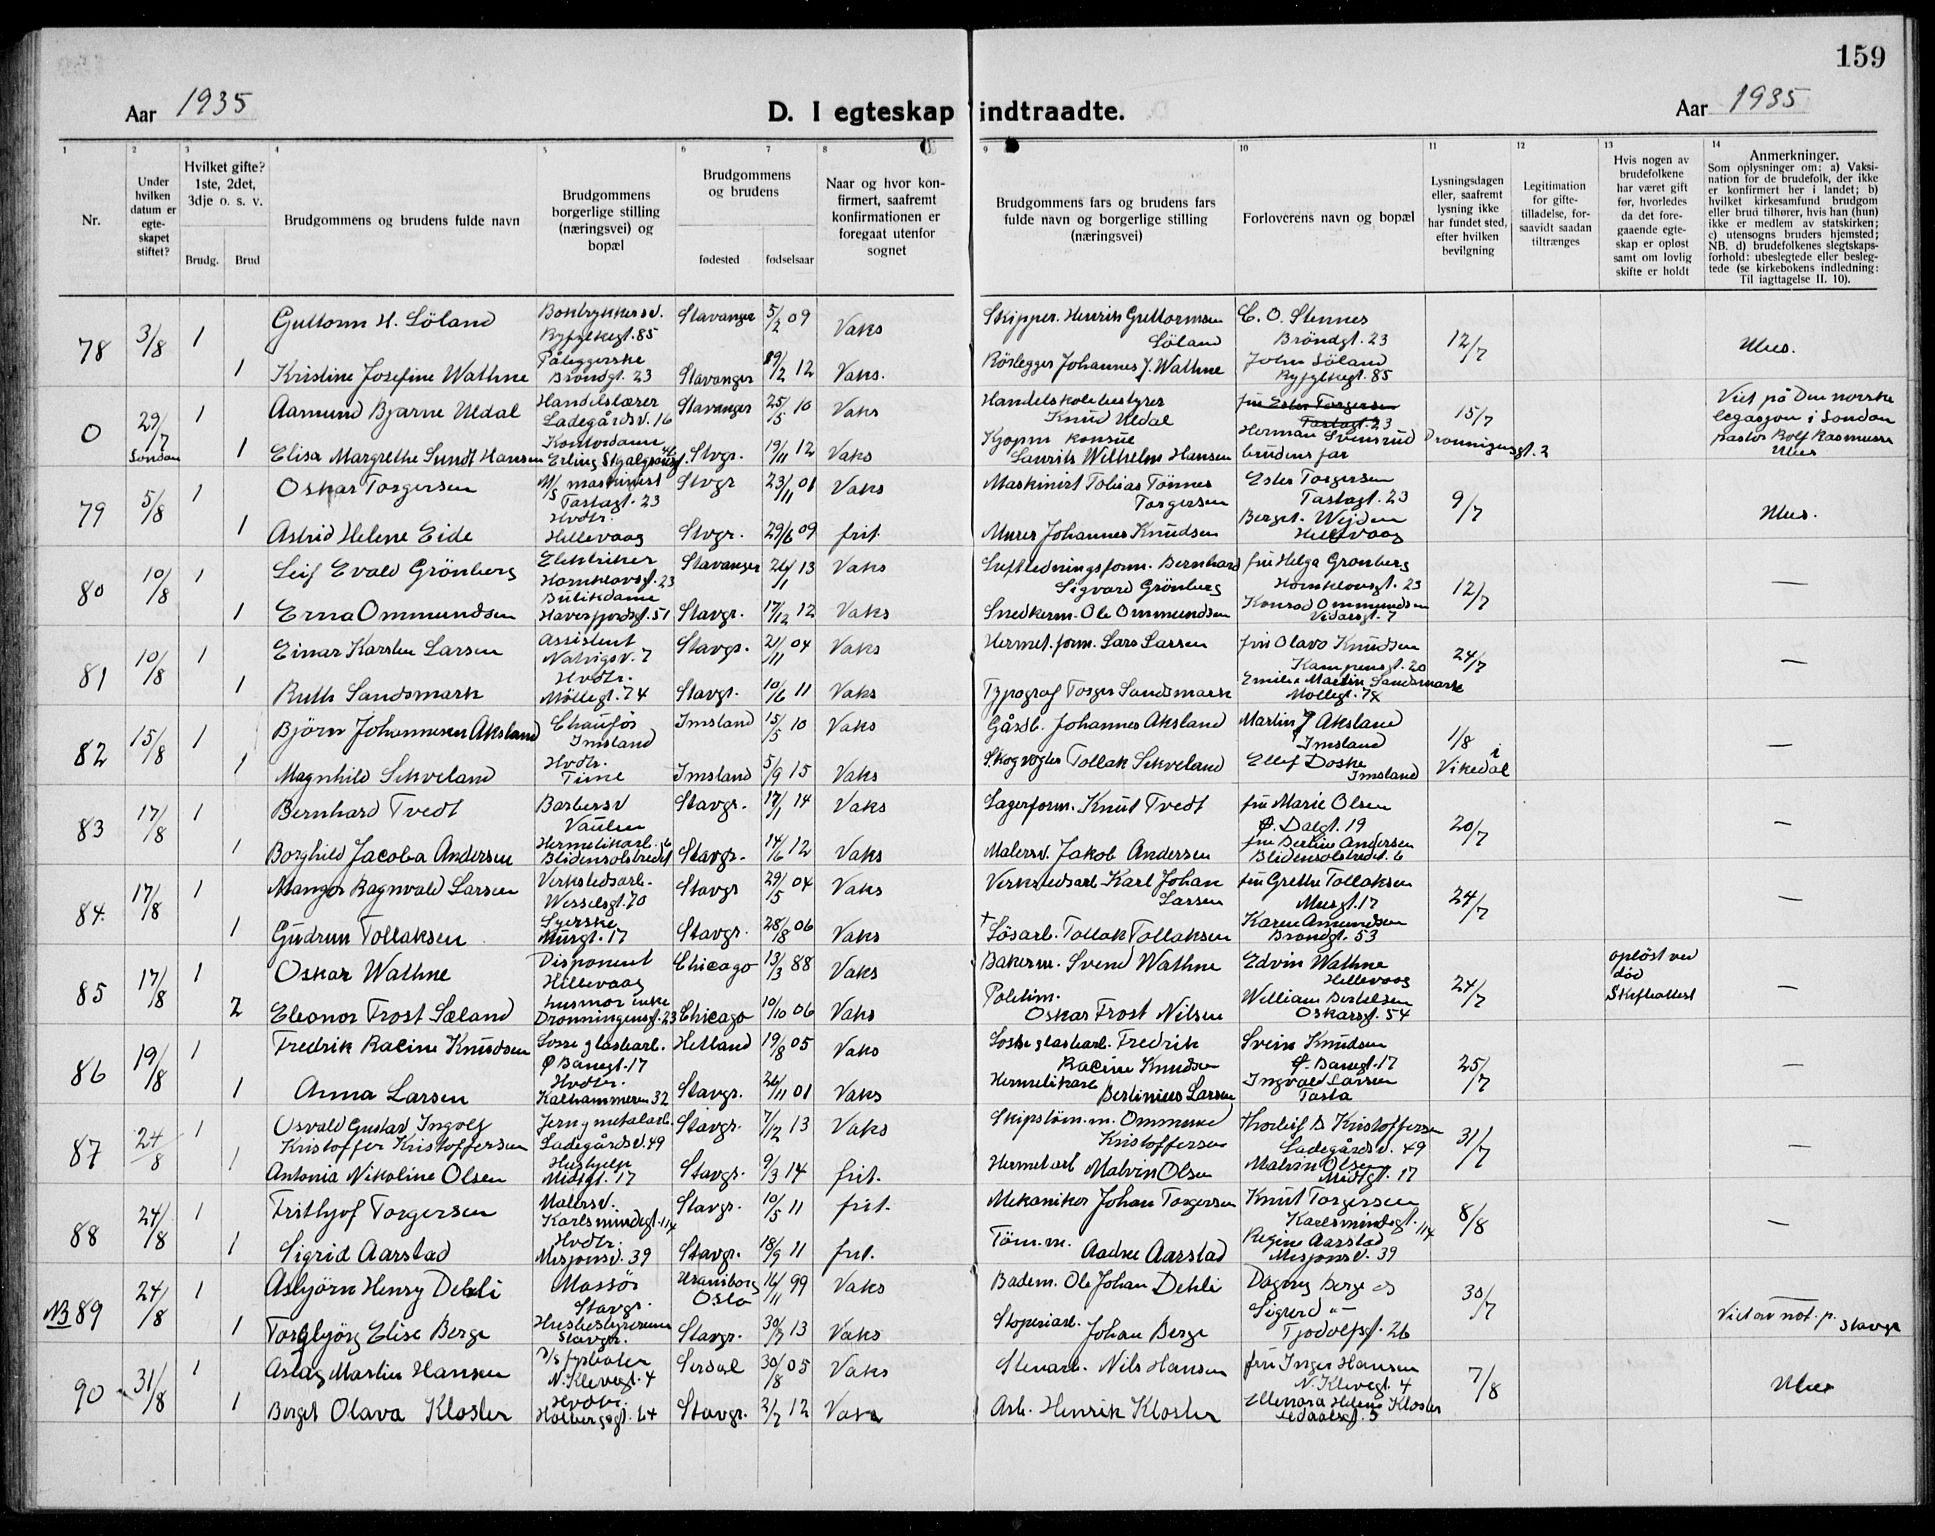 159
Aar 1935
D. I egteskap indtraadte.
Aar 1935
1 2 3 4 5 6 7 8 9 10 11 12 13 14
Nr.
Under hvilken datum er egte-skapet stiftet?
Hvilket gifte? 1ste, 2det, 3dje o. s. v.
Brudg. Brud
Brudgommens og brudens fulde navn
Brudgommens borgerlige stilling (næringsvei) og bopæl
Brudgommens og brudens
fødested fødselsaar
Naar og hvor kon-firmert, saafremt konfirmationen er foregaat utenfor sognet
Brudgommens fars og brudens fars fulde navn og borgerlige stilling (næringsvei)
Forloverens navn og bopæl
Lysningsdagen eller, saafremt lysning ikke har fundet sted, efter hvilken bevilgning
Legitimation for gifte-tilladelse, for-saavidt saadan tiltrænges
Hvis nogen av brudefolkene har været gift før, hvorledes da det fore-gaaende egte-skap er opløst samt om lovlig skifte er holdt
Anmerkninger.
Som oplysninger om: a) Vaksi-nation for de brudefolk, der ikke er konfirmert her i landet; b) hvilket kirkesamfund brudgom eller brud tilhører, hvis han (hun) ikke er medlem av statskirken; c) utensogns bruders hjemsted; NB. d) brudefolkenes slegtskaps-forhold: ubeslegtede eller besleg-tede (se kirkebokens indledning: Til iagttagelse II. 10).
78 3/8 1 Guttorm H. Söland Boktrykkersv. Ryfylkegt. 85 Stavanger 5/2 09 Vaks Skipper. Henrik Guttormsen Söland C. O. Stennes Bröndgt. 23 12/7
1 Kristine Josefine Wathne Påleggerske Bröndgt. 23 Stavanger 19/2 12 Vaks. Rörlegger Johannes J. Wathne John Söland Ryfylkegt. 85
0 29/7 London 1 Aamund Bjarne Uldal Handelslærer Ladegårdsv. 16 Stavanger 25/5 10 Vaks Handelskolebestyrer Knud Uldal fru Ester Torgersen Tastagt. 23 Herman Svensrud Dronningensgt. 2 15/7 Viet på Den norske legasjon i London pastor Rolf Rasmussen
1 Elisa Margrethe Sundt Hansen Kontordame Erling Skjalgsonsgt. Stvgr. 19/11 12 Vaks Kjøpm konsul Laurits Wilhelm Hansen brudens far
79 5/8 1 Oskar Torgersen M/S maskinist Tastagt. 23 Stvgr 23/11 01 Vaks Maskinist Tobias Tönnes Torgersen Ester Torgersen Tastagt. 23 9/7
1 Astrid Helene Eide Hvdtr. Hillevaag Stvgr. 29/6 09 frit. Murer Johannes Knudsen Berget. Hillevaag
80 10/8 1 Leif Evald Grönberg Elektriker Hornklovsgt. 23 Stavanger 26/1 13 Vaks Luftledningsform. Bernhard Sigvard Grönberg fru Helga Gronberg Hornklovsgt. 23 12/7 —
1 Erna Ommundsen Butikdame Havrsfjordsgt. 51 Stavgr. 17/12 12 Vaks Snedkerm. Ole Ommundsen Konrad Ommundsen Vidarsgt. 7
81 10/8 1 Einar Karsten Larsen Assistent Natvigsv. 7 Stavgr. 21/11 04 Vaks Hermet. form. Lars Larsen fru Olava Knudsen Kampensgt. 20 24/7 —
1 Ruth Sandsmark Hvdtr. Möllegt. 74 Stavgr. 10/6 11 Vaks Typograf Torger Sandsmark Martin Sandsmark Mollegt. 74
82 15/8 1 Björn Johannesen Aksland Chauför Imsland Imsland 15/5 10 Vaks Gårdb. Johannes Aksland Martin J Aksland Imsland 1/8 i Vikedal —
1 Magnhild Sekveland Hvdtr. Time Imsland 5/9 15 Vaks Skogvogter Tollak Sekveland Ellef Doske Imsland
83 17/8 1 Bernhard Tvedt Barbersv Vaulen Stavgr. 17/1 14 Vaks Lagerform. Knut Tvedt fru Marie Olsen Ø. Dalgt. 19 20/7 —
1 Borghild Jacoba Andersen Hermetikarb. Blidensolstredet 6 Stavgr. 14/6 12 Vaks Malersv. Jakob Andersen fru Bertine Andersen Blidensolstredet. 6
84. 17/8 1 Mangor Ragnvald Larsen Verkstedsarb. Wesselsgt. 70 Stavgr 29/5 04 Vaks Verkstedsarb Karl Johan Larsen fru Grethe Tollaksen Murgt. 17 24/7 —
1 Gudrun Tollaksen Syerske Murgt. 17 Stavgr. 28/8 06 Vaks † Lösarb. Tollak Tollaksen Karen Amundsen Bröndgt. 53
85 17/8 1 Oskar Wathne Disponent Hillevaag Chicago 13/3 88 Vaks Bakerm. Svend Wathne Edvin Wathne Hillevaag 24/7 oplöst ved död Skifteattest —
2 Eleonor Frost Sæland husmor enke Dronningensgt. 23 Chicago 10/10 06 Vaks Politim. Oskar Frost Nilsen William Bertelsen Oskarsgt. 54
86 19/8 1 Fredrik Racine Knudsen Losse glasharb. Ø Banegt. 17 Hetland 19/8 05 Vaks Fredrik Racine Knudsen Svein Knudsen Ø. Banegt. 17 25/7 —
1 Anna Larsen Hvdtr. Kalhammeren 32 Stavgr. 26/11 01 Vaks Hermetikarb Bertinius Larsen Ingvald Larsen Tasta
87 24/8 1 Osvald Gustav Ingolf Kristoffer Kristoffersen Jern & metalarb. Ladegårdsv. 49 Stavgr. 7/12 13 Vaks Skipstöm.m. Ommund Kristoffersen Thorleif B Kristoffersen Ladegårdsv. 49 31/7 —
1 Antonia Nikoline Olsen Hushjelp Midtgt. 17 Stavgr. 9/3 14 frit. Hermetarb Malvin Olsen Malvin Olsen Midtgt. 17
88 24/8 1 Frithjof Torgersen Malersv. Karlsmindegt. 114 Stavgr. 10/5 11 frit. Mekaniker Johan Torgersen Knut Torgersen Karlsmindegt. 114 8/8 —
1 Sigrid Aarstad Hvdtr. Misjonsv. 39 Stavgr. 18/9 11 frit. Töm.m. Aadne Aarstad Regine Aarstad Misjonsv. 39
NB 89 24/8 1 Asbjörn Henry Dehli Massör Stavgr. Uranienborg Oslo 16/11 99 Vaks Badem. Ole Johan Dehli Dagny Berge og Sigurd "— Tjodolfsgt. 26 30/7 Viet av not. p. Stavgr
1 Torgbjörg Elise Berge Husbestyrerinne Stavgr. Stavgr. 30/7 13 Vaks Stoperiarb. Johan Berge
90 31/8 1 Aslag Martin Hansen D/S fyrböter N. Klevegt. 4 Sirdal 30/8 05 Vaks Stenarb. Nils Hansen fru Inger Hansen N. Klevegt. 4 7/8
1 Berget Olava Kloster Hvdtr. Holbergsgt. 64 Stavgr. 2/7 12 Vaks Arb. Henrik Kloster Ellenora Helene Kloster Ledaalsgt. 5